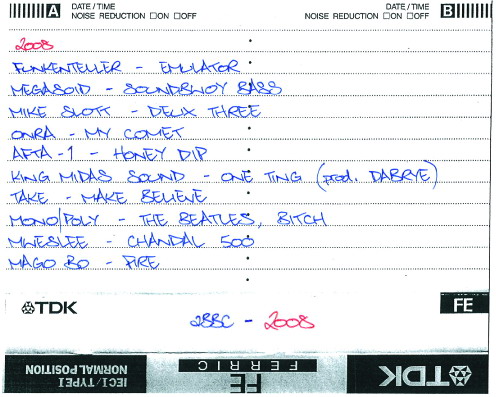 A DATE/TIME
NOISE REDUCTION □ON □OFF
DATE/TIME B
NOISE REDUCTION □ON □OFF
2008
FUNKENTELLER - EMULATOR
MEGASOID - SOUNDBWOY BASS
MIKE SLOTT - DEUX THREE
ONRA - MY COMET
AFTA-1 - HONEY DIP
KING MIDAS SOUND - ONE TING (prod. DABRYE)
TAKE - MAKE BELIEVE
MONO/POLY - THE BEATLES, BITCH
MWESLEE - CHANDAL 500
MAGO BO - FIRE
TDK
FE
2BBC - 2008
IEC I/TYPE I
NORMAL POSITION
FE
FERRIC
TDK